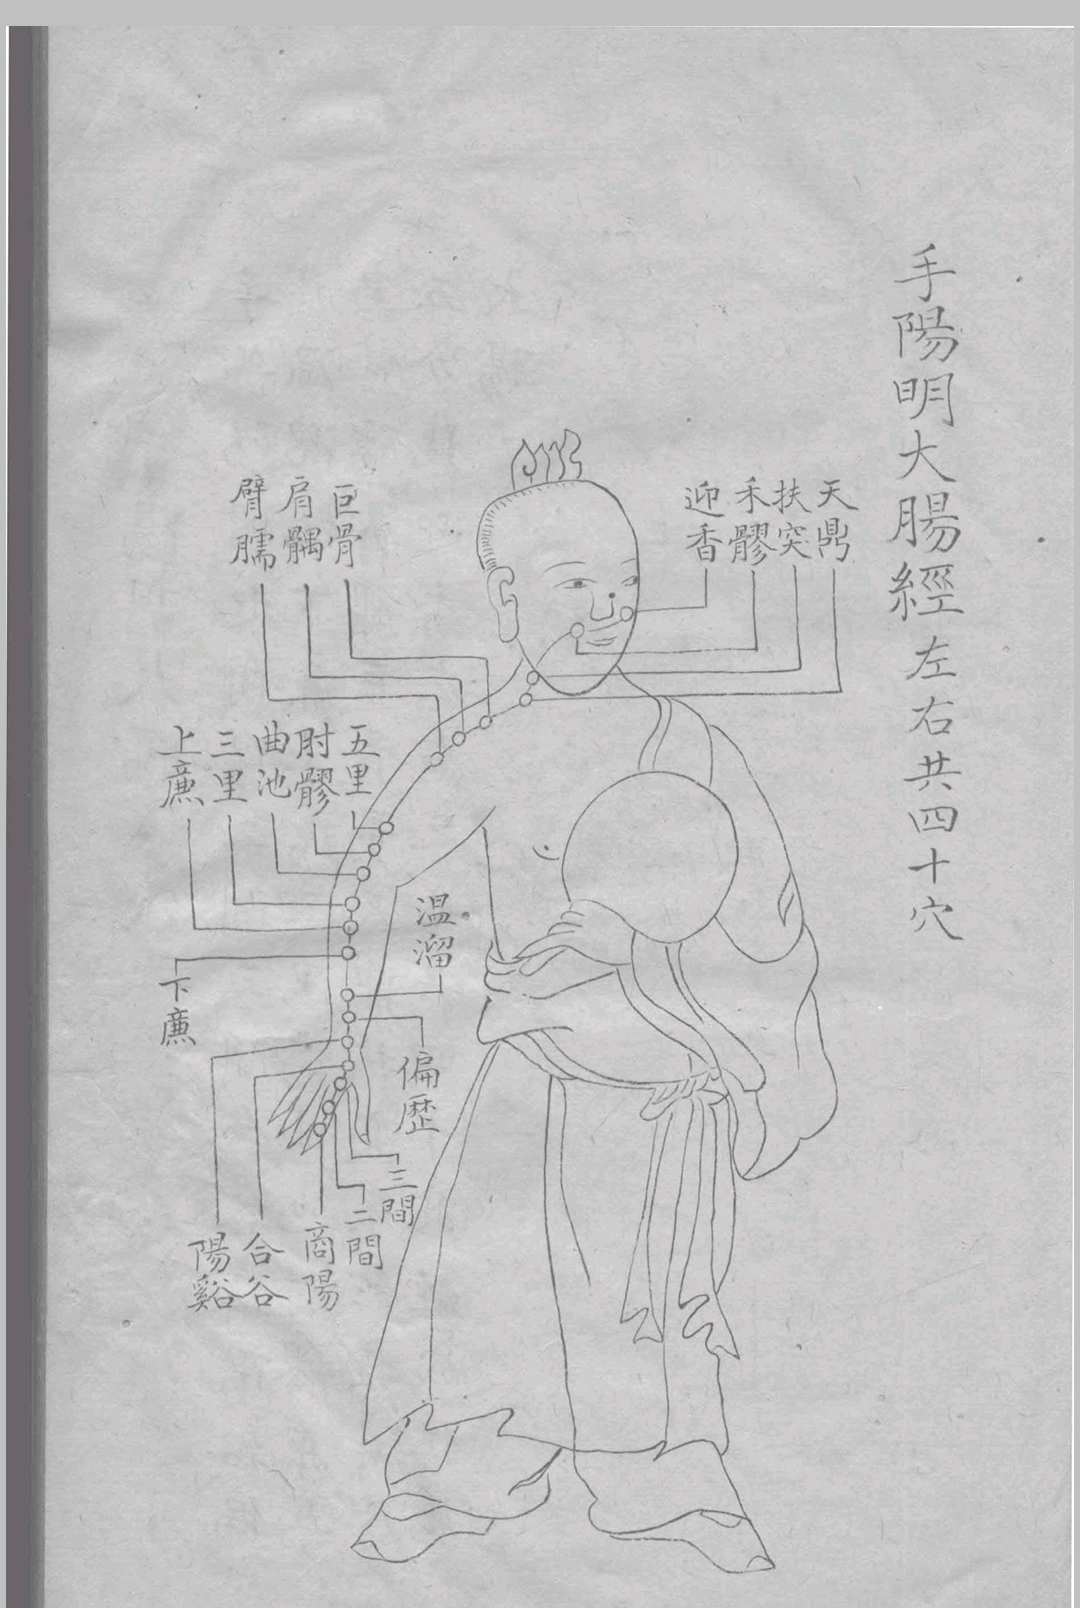 手陽明大腸經左右共四十穴
天鼎
扶突
禾髎
迎香
巨骨
肩髃
臂臑
五里
肘髎
曲池
三里
上廉
下廉
温溜
偏歷
三間
二間
商陽
合谷
陽谿